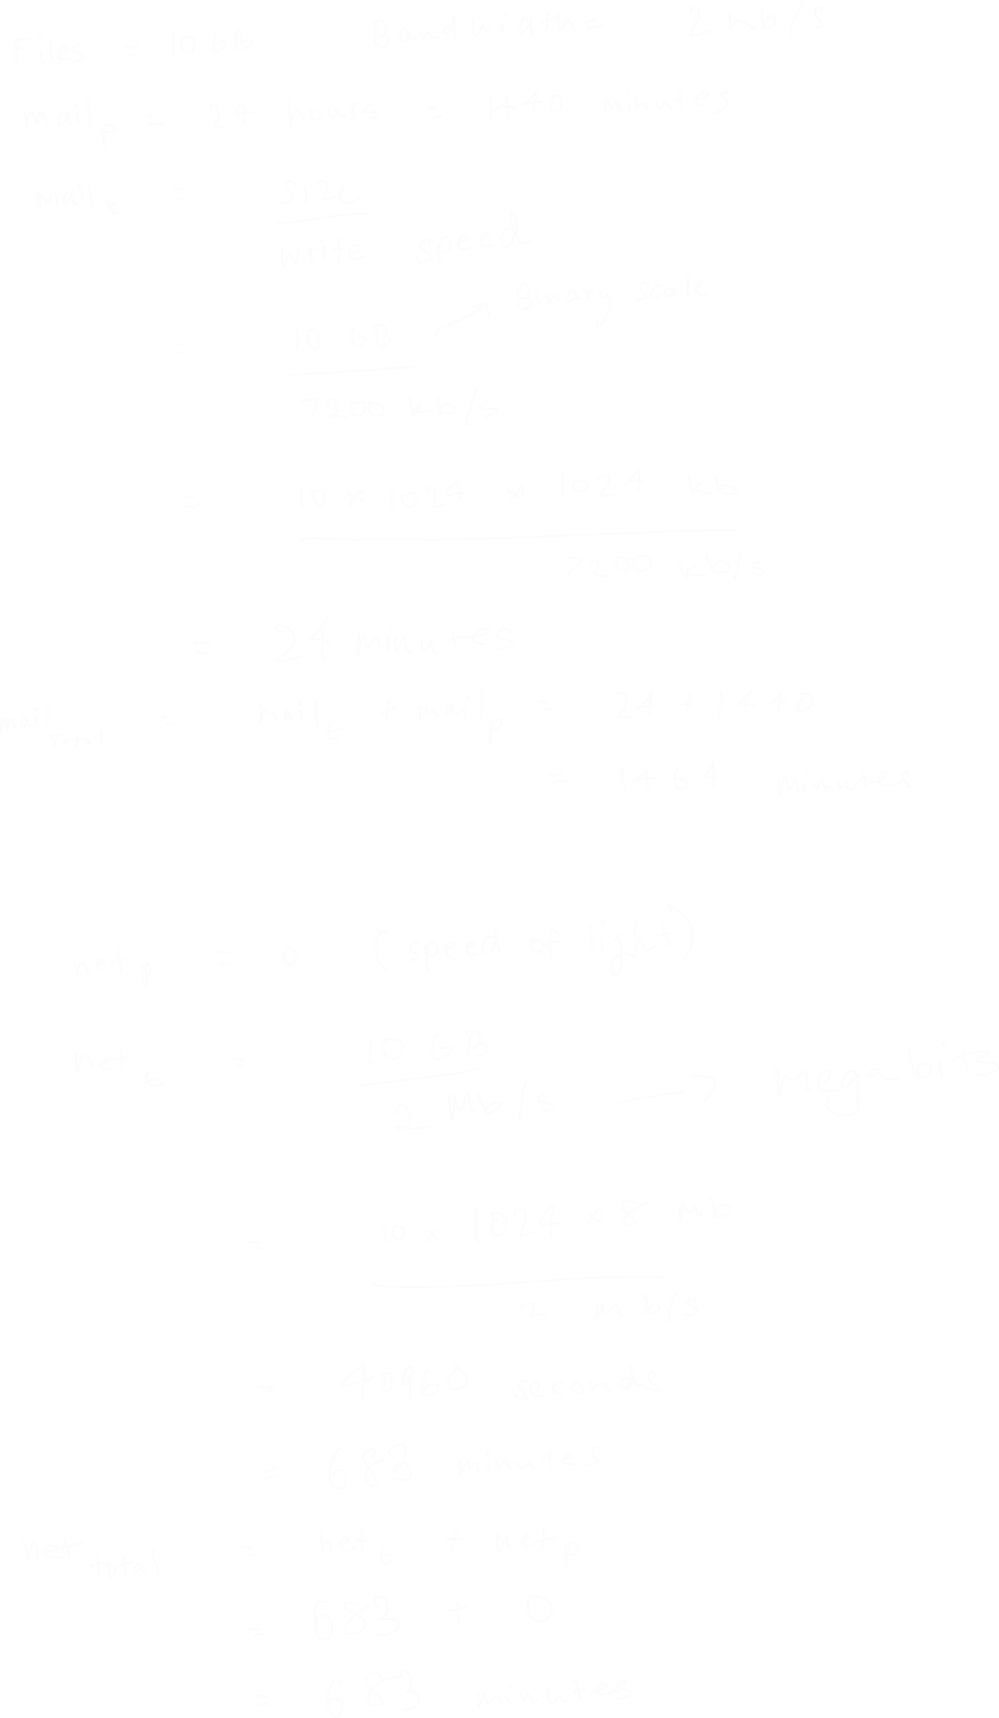 Files = 10 GB Bandwidth = 2 mb/s
mail p = 24 hours = 1440 minutes
mail t = size
write speed
= 10 GB → Binary scale
7200 kb/s
= 10 x 1024 x 1024 kb
7200 kb/s
= 24 minutes
mail total = mail t + mail p = 24 + 1440
= 1464 minutes
net p = 0 (speed of light)
net t = 10 GB
2 Mb/s → megabits
= 10 x 1024 x 8 Mb
2 mb/s
= 40960 seconds
= 683 minutes
net total = net t + net p
= 683 + 0
= 683 minutes